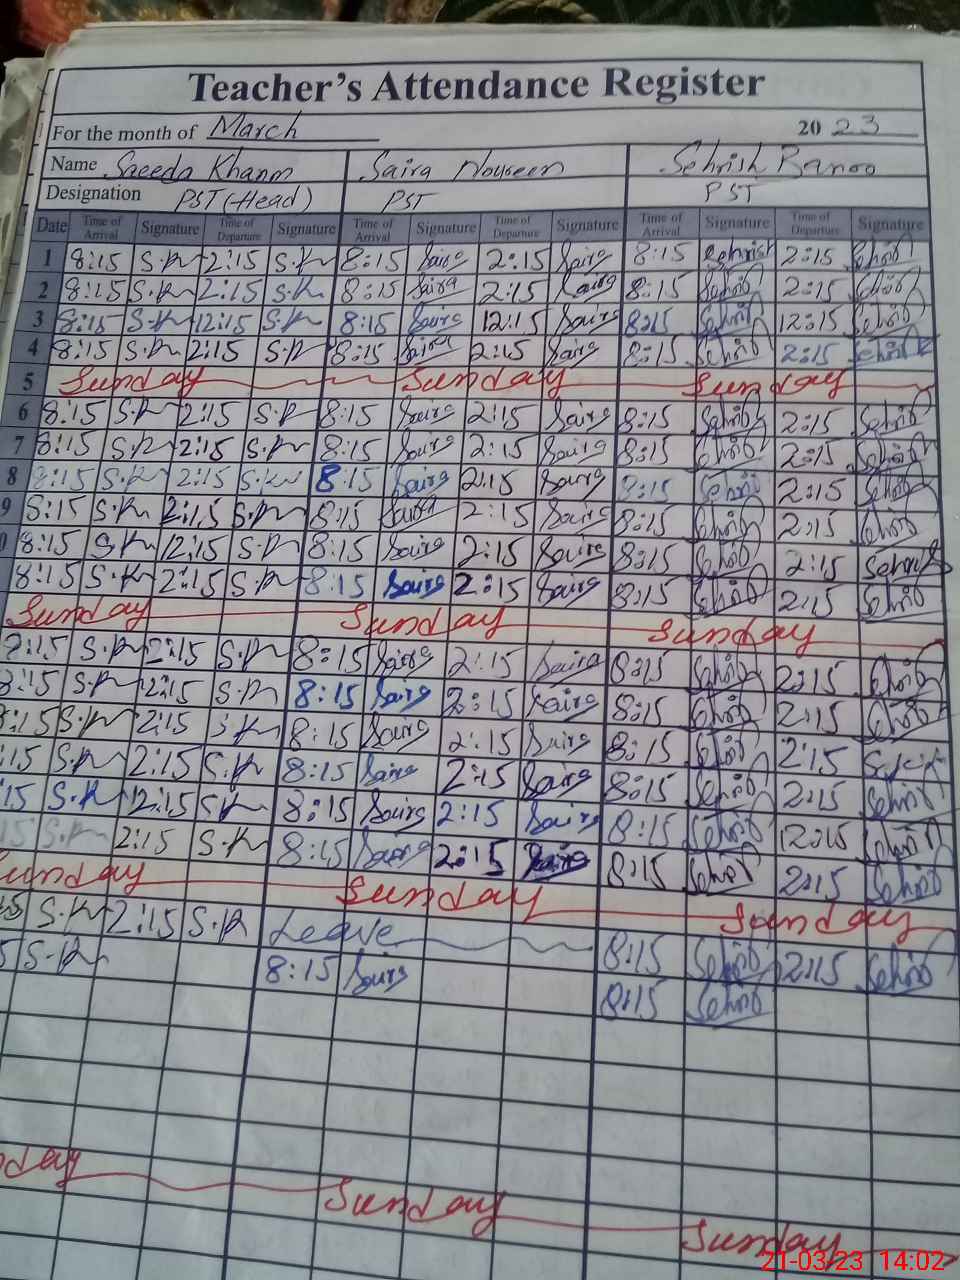 Teacher's Attendance Register
For the month of March 2023
Name Saeeda Khanm Saira Noureen Sehrish Banoo
Designation PST (Head) PST PST
Date Time of Arrival Signature Time of Departure Signature Time of Arrival Signature Time of Departure Signature Time of Arrival Signature Time of Departure Signature
1 8:15 S.K 2:15 S.K 8:15 Saira 2:15 Saira 8:15 Sehrish 2:15
2 8:15 S.K 2:15 S.K 8:15 Saira 2:15 Saira 8:15 2:15
3 8:15 S.K 12:15 S.K 8:15 Saira 12:15 Saira 8:15 12:15
4 8:15 S.K 2:15 S.K 8:15 Saira 2:15 Saira 8:15 2:15
5 Sunday Sunday Sunday
6 8:15 S.K 2:15 S.K 8:15 Saira 2:15 Saira 8:15 2:15
7 8:15 S.K 2:15 S.K 8:15 Saira 2:15 Saira 8:15 2:15
8 8:15 S.K 2:15 S.K 8:15 Saira 2:15 Saira 8:15 2:15
9 8:15 S.K 2:15 S.K 8:15 Saira 2:15 Saira 8:15 2:15
0 8:15 S.K 12:15 S.K 8:15 Saira 2:15 Saira 8:15 2:15
8:15 S.K 2:15 S.K 8:15 Saira 2:15 Saira 8:15 2:15
Sunday Sunday Sunday
S.K 2:15 S.K 8:15 Saira 2:15 Saira 8:15 2:15
:15 S.K 2:15 S.K 8:15 Saira 2:15 Saira 8:15 2:15
:15 S.K 2:15 S.K 8:15 Saira 2:15 Saira 8:15 2:15
:15 S.K 2:15 S.K 8:15 Saira 2:15 Saira 8:15 2:15
15 S.K 12:15 S.K 8:15 Saira 2:15 Saira 8:15 12:15
S.K 2:15 S.K 8:15 Saira 2:15 Saira 8:15 2:15
unday Sunday Sunday
S.K 2:15 S.K Leave 8:15 2:15
5 S.K 8:15 Saira 8:15
day Sunday Sunday
21-03-23 14:02